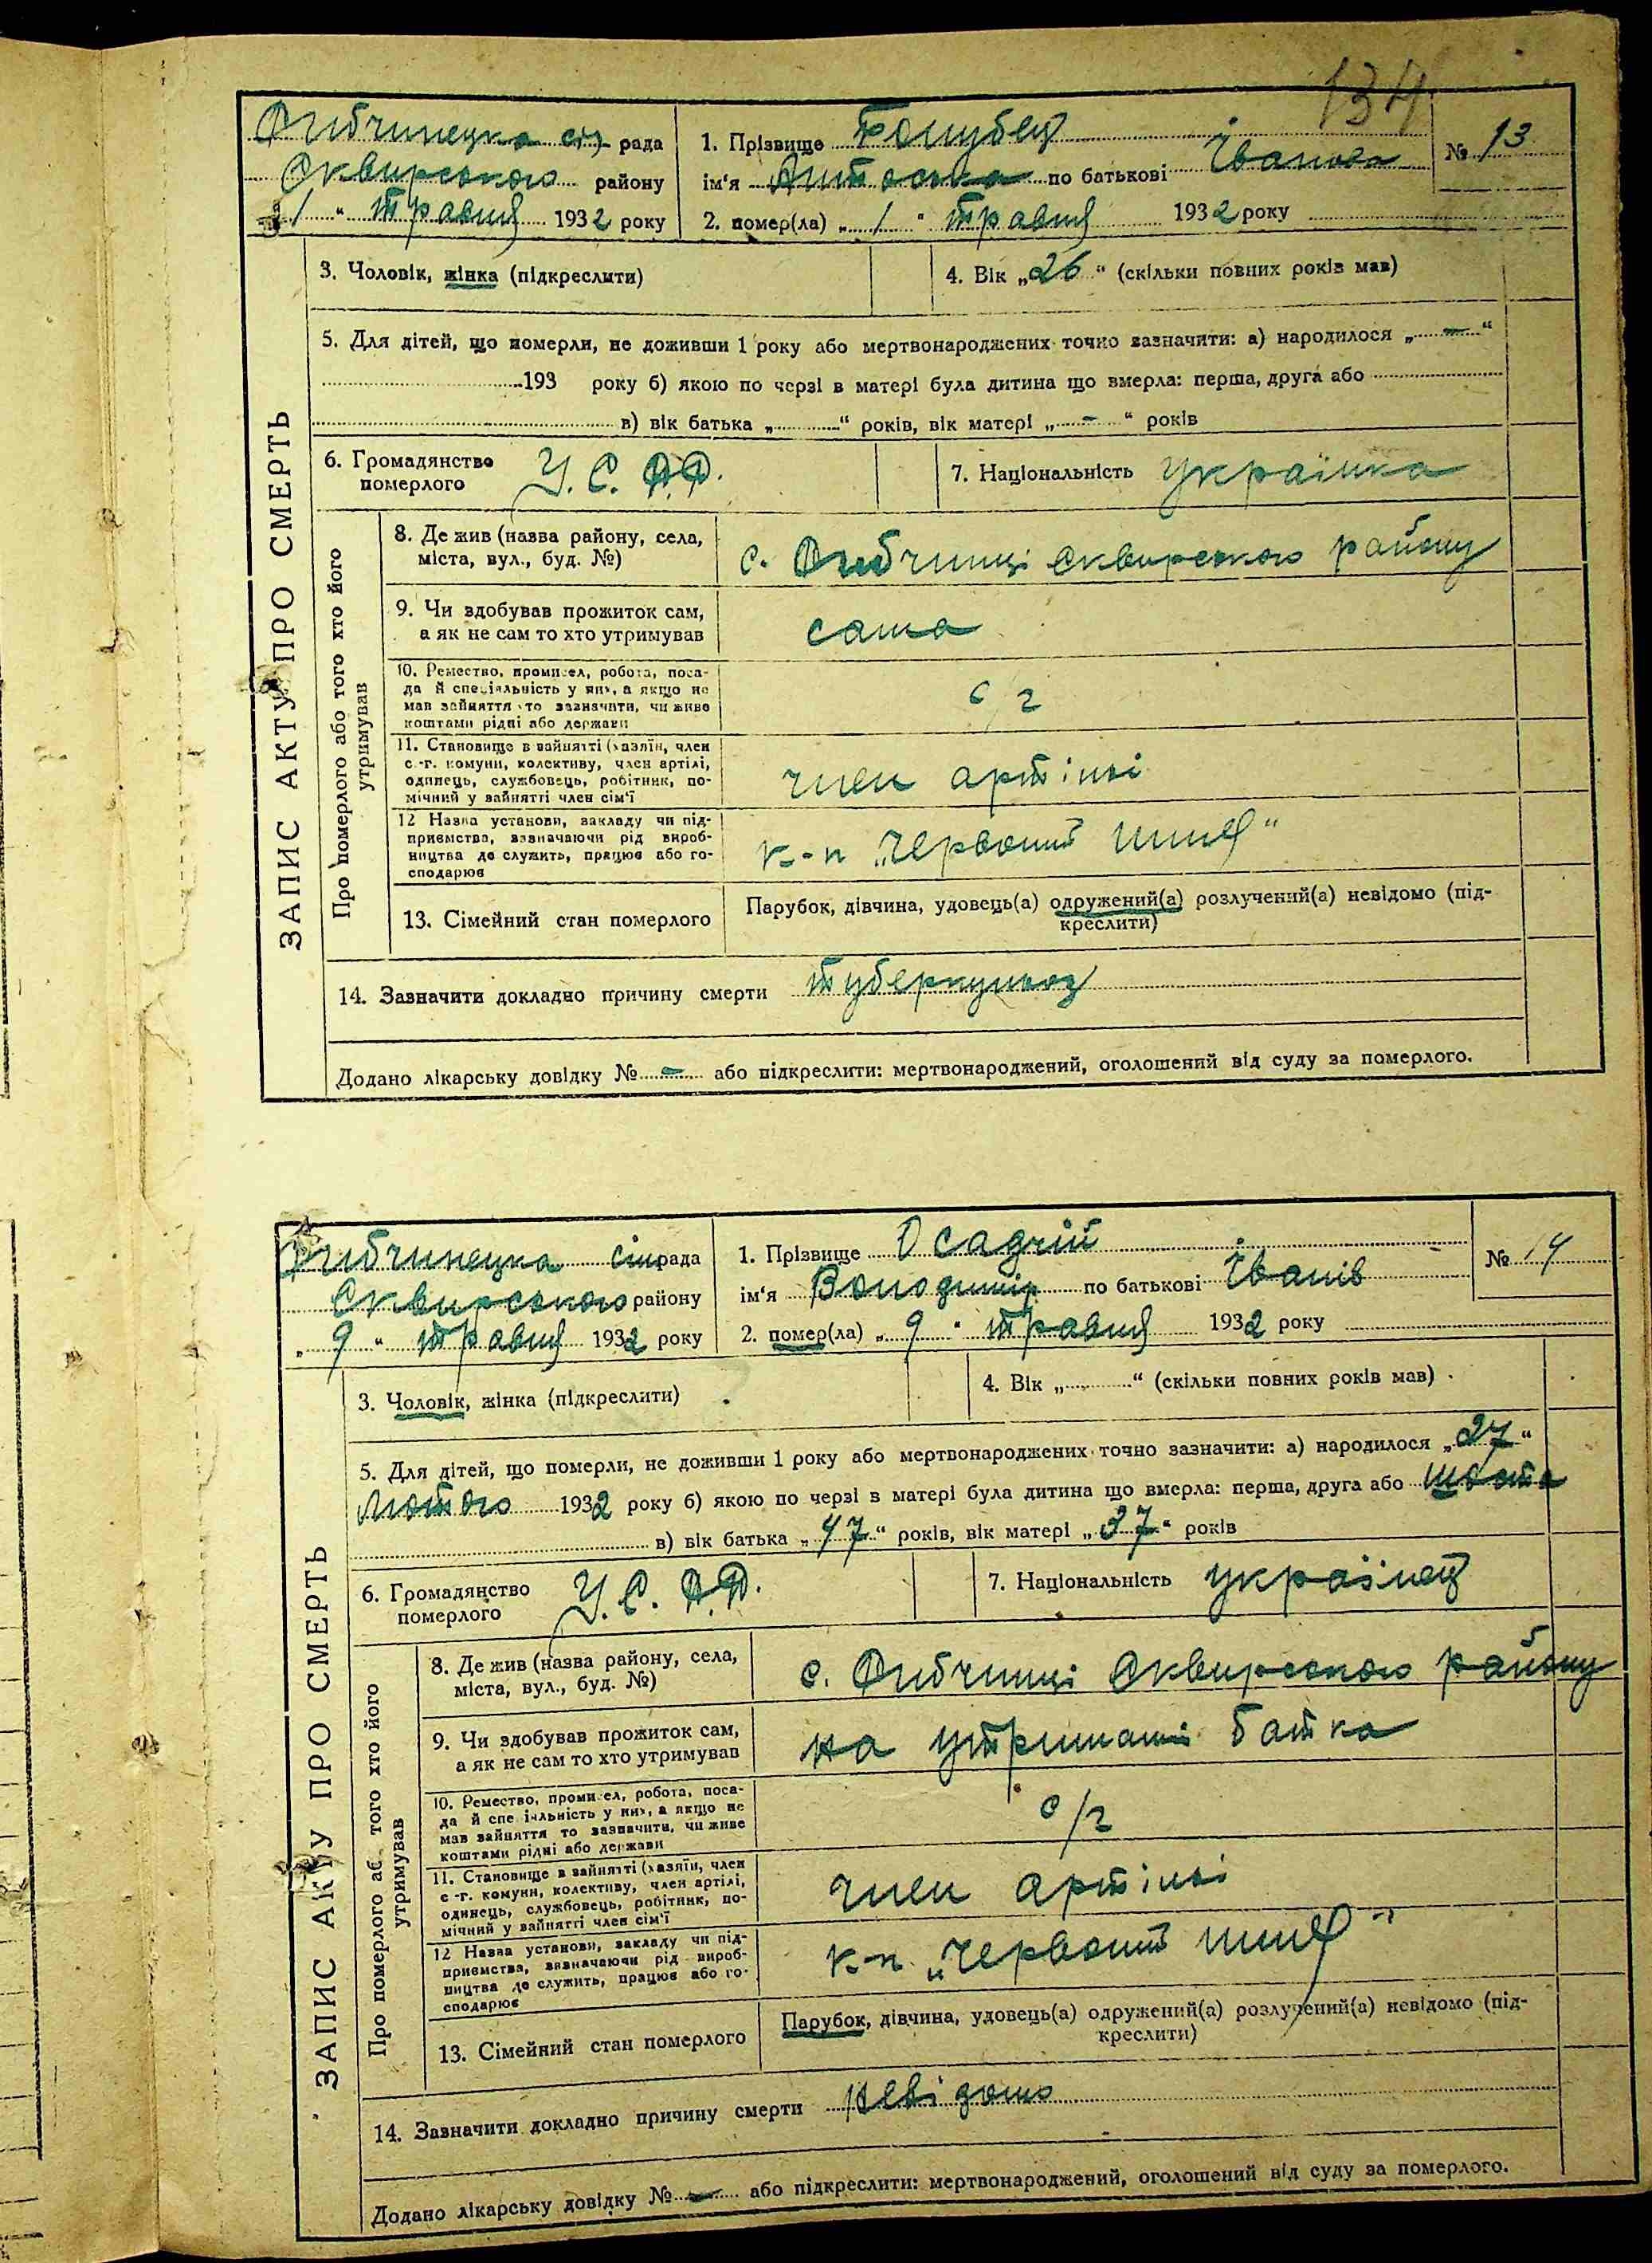 134
Дибчинецка с/р рада
Сквирського району
„1“ травня 1932 року
1. Прізвище Голубец
ім‘я Антоська по батькові Іванова
2. помер(ла) „1“ травня 1932 року
№ 13
ЗАПИС АКТУ ПРО СМЕРТЬ
3. Чоловік, жінка (підкреслити)
4. Вік „26“ (скільки повних років мав)
5. Для дітей, що померли, не доживши 1 року або мертвонароджених точно зазначити: а) народилося „ – “
193 року б) якою по черзі в матері була дитина що вмерла: перша, друга або
в) вік батька „ “ років, вік матері „ – “ років
6. Громадянство
померлого
У.С.Р.Р.
7. Національність українка
Про померлого або того хто його
утримував
8. Де жив (назва району, села,
міста, вул., буд. №)
с. Дибчинці Сквирського району
9. Чи здобував прожиток сам,
а як не сам то хто утримував
сама
10. Ремество, промисел, робота, поса-
да й спеціяльність у них, а якщо не
мав зайняття то зазначити, чи живе
коштами рідні або держави
с/г
11. Становище в зайнятті (хазяїн, член
с.-г. комуни, колективу, член артілі,
одинець, службовець, робітник, по-
мічний у зайнятті член сім‘ї
член артілі
12 Назва установи, закладу чи під-
приємства, зазначаючи рід вироб-
ництва де служить, працює або го-
сподарює
к-п „Червоний шлях“
13. Сімейний стан померлого
Парубок, дівчина, удовець(а) одружений(а) розлучений(а) невідомо (під-
креслити)
14. Зазначити докладно причину смерти туберкульоз
Додано лікарську довідку № – або підкреслити: мертвонароджений, оголошений від суду за померлого.
Дибчинецка сільрада
Сквирського району
„9“ травня 1932 року
1. Прізвище Осадчій
ім‘я Володимір по батькові Іванів
2. помер(ла) „9“ травня 1932 року
№ 14
ЗАПИС АКТУ ПРО СМЕРТЬ
3. Чоловік, жінка (підкреслити)
4. Вік „ “ (скільки повних років мав)
5. Для дітей, що померли, не доживши 1 року або мертвонароджених точно зазначити: а) народилося „27“
Лютого 1932 року б) якою по черзі в матері була дитина що вмерла: перша, друга або шоста
в) вік батька „47“ років, вік матері „37“ років
6. Громадянство
померлого
У.С.Р.Р.
7. Національність українец
Про померлого аб того хто його
утримував
8. Де жив (назва району, села,
міста, вул., буд. №)
с. Дибчинці Сквирського району
9. Чи здобував прожиток сам,
а як не сам то хто утримував
на утриманні батка
10. Ремество, промисел, робота, поса-
да й спеціяльність у них, а якщо не
мав зайняття то зазначити, чи живе
коштами рідні або держави
с/г
11. Становище в зайнятті (хазяїн, член
с.-г. комуни, колективу, член артілі,
одинець, службовець, робітник, по-
мічний у зайнятті член сім‘ї
член артілі
12 Назва установи, закладу чи під-
приємства, зазначаючи рід вироб-
ництва де служить, працює або го-
сподарює
к-п „Червоний шлях“
13. Сімейний стан померлого
Парубок, дівчина, удовець(а) одружений(а) розлучений(а) невідомо (під-
креслити)
14. Зазначити докладно причину смерти невідомо
Додано лікарську довідку № – або підкреслити: мертвонароджений, оголошений від суду за померлого.